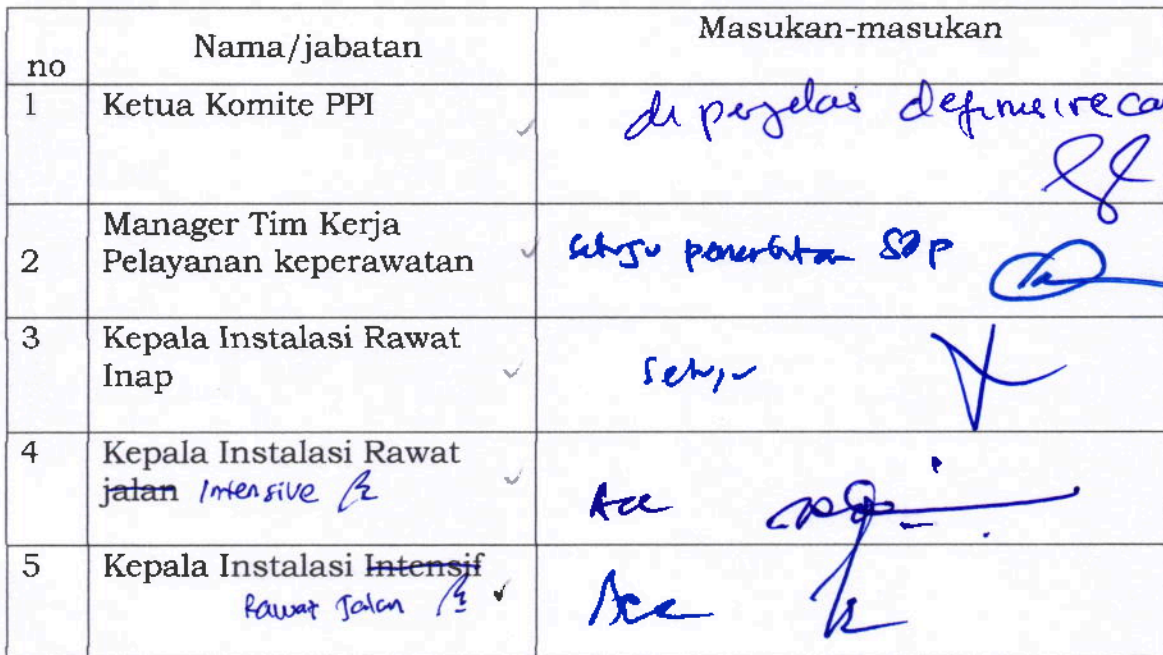 no Nama/jabatan Masukan-masukan
1 Ketua Komite PPI di perjelas definisi
2 Manager Tim Kerja
Pelayanan keperawatan setuju penerbitan SOP
3 Kepala Instalasi Rawat
Inap setuju
4 Kepala Instalasi Rawat
jalan Intensive Acc
5 Kepala Instalasi Intensif
Rawat Jalan Acc